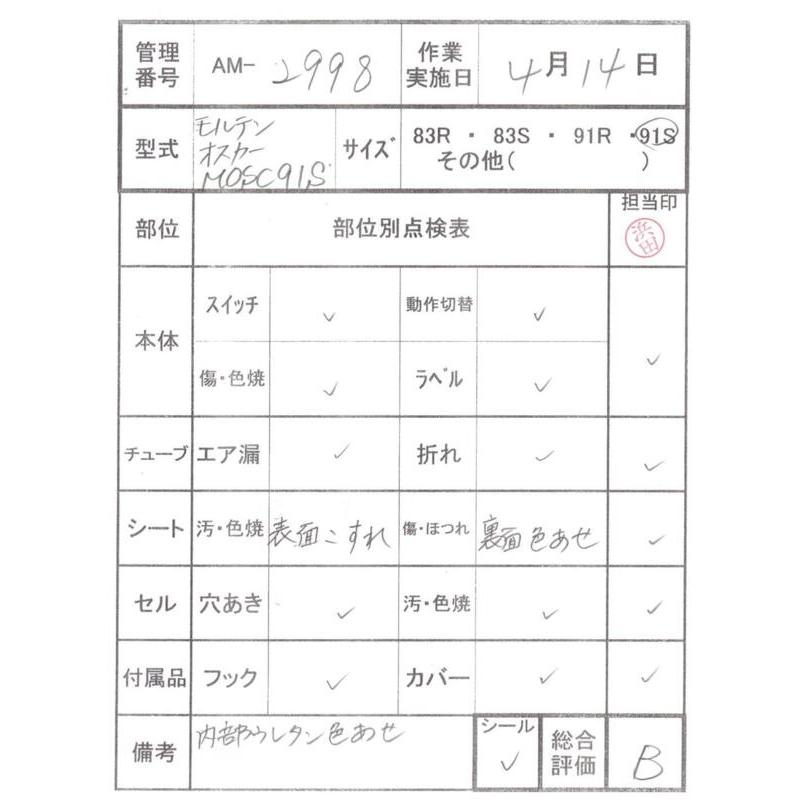 管理番号 AM- 2998 作業実施日 4月14日
型式 モルテン オスカー MOSC91S サイズ 83R ・ 83S ・ 91R ・ 91S その他( )
部位 部位別点検表 担当印 浜田
本体 スイッチ ✓ 動作切替 ✓ ✓
傷・色焼 ✓ ラベル ✓
チューブ エア漏 ✓ 折れ ✓ ✓
シート 汚・色焼 表面こすれ 傷・ほつれ 裏面色あせ ✓
セル 穴あき ✓ 汚・色焼 ✓ ✓
付属品 フック ✓ カバー ✓ ✓
備考 内部ウレタン色あせ シール ✓ 総合評価 B